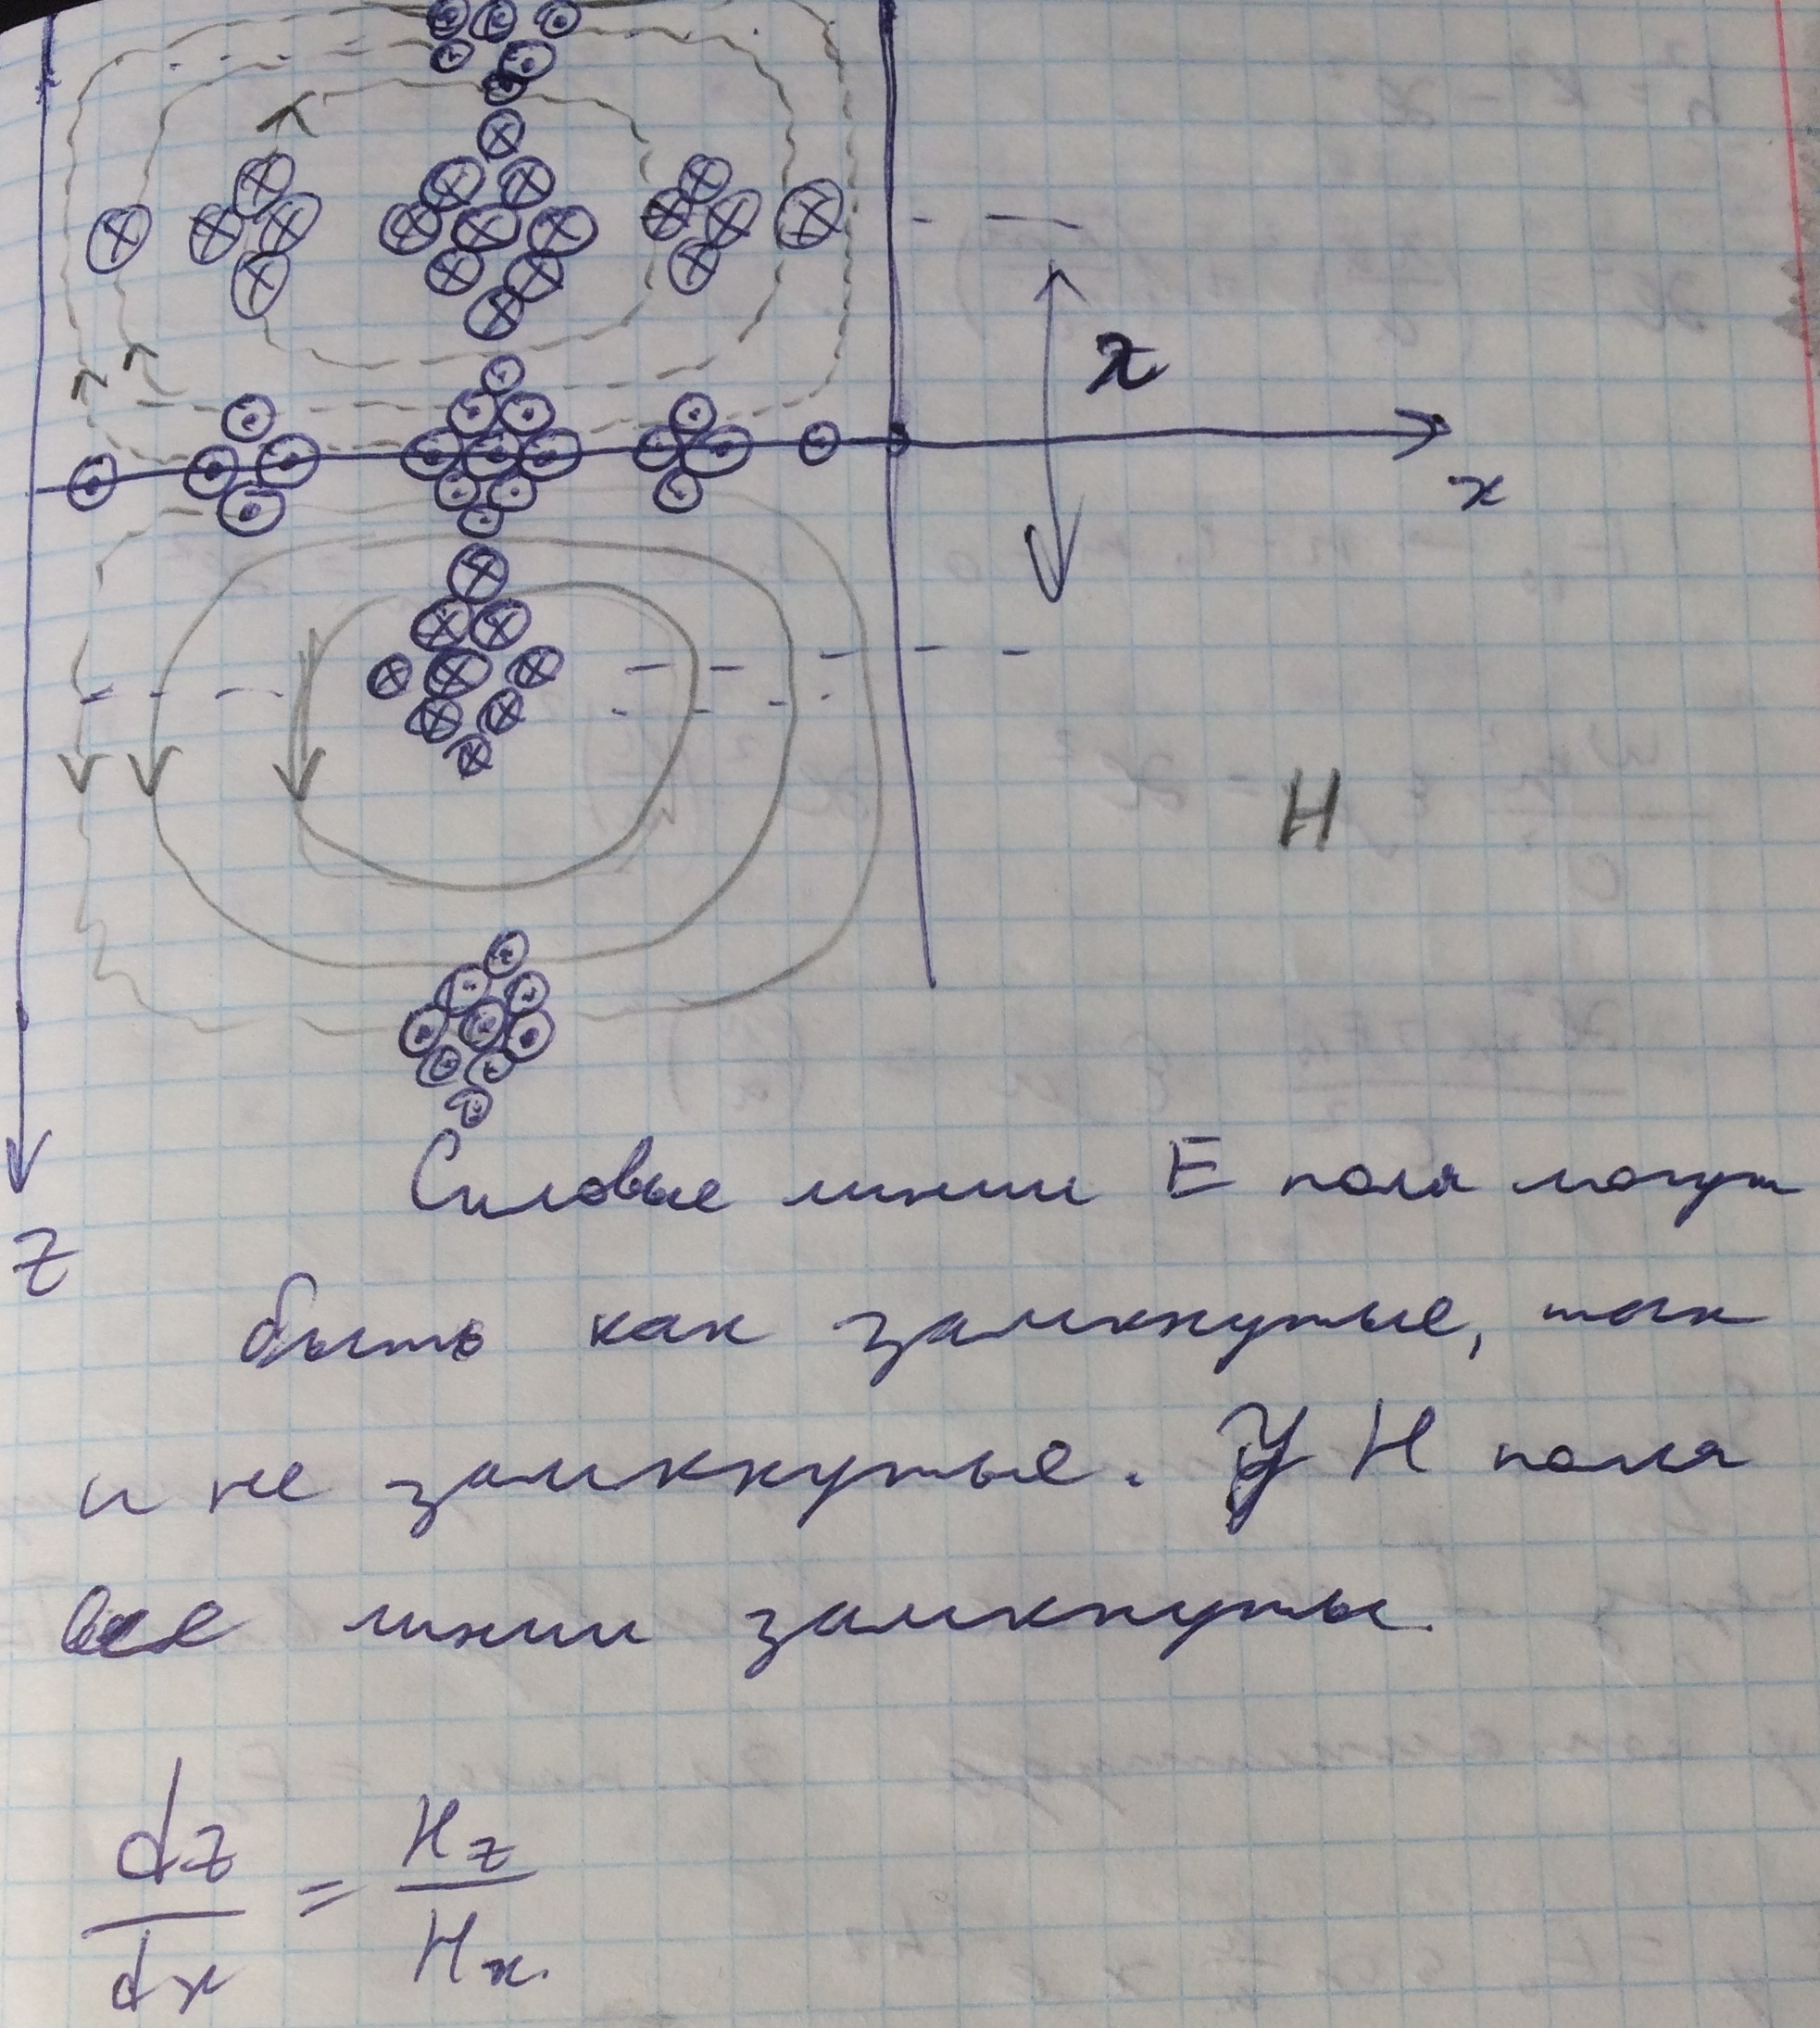 x
x
H
z
Силовые линии E поля могут
быть как замкнутые, так
и не замкнутые. У H поля
все линии замкнуты.
dz/dx = Hz/Hx.